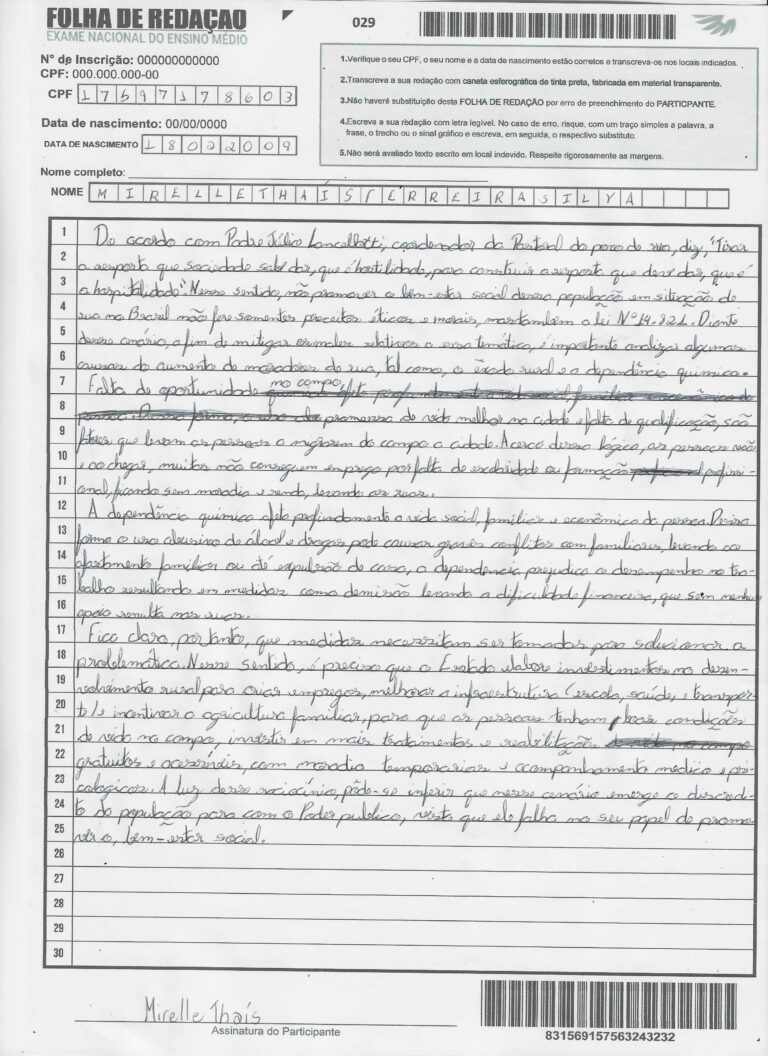 FOLHA DE REDAÇÃO
EXAME NACIONAL DO ENSINO MÉDIO
029
N° de Inscrição: 000000000000
CPF: 000.000.000-00
CPF 17597178603
Data de nascimento: 00/00/0000
DATA DE NASCIMENTO 18022009
1.Verifique o seu CPF, o seu nome e a data de nascimento estão corretos e transcreva-os nos locais indicados.
2.Transcreva a sua redação com caneta esferográfica de tinta preta, fabricada em material transparente.
3.Não haverá substituição desta FOLHA DE REDAÇÃO por erro de preenchimento do PARTICIPANTE.
4.Escreva a sua redação com letra legível. No caso de erro, risque, com um traço simples a palavra, a
frase, o trecho ou o sinal gráfico e escreva, em seguida, o respectivo substituto.
5.Não será avaliado texto escrito em local indevido. Respeite rigorosamente as margens.
Nome completo:
NOME MIRELLE THAÍS FERREIRA SILVA
1 De acordo com Padre Júlio Lancellotti, coordenador da Pastoral do povo de rua, diz, "Tirar
2 a resposta que sociedade sabe dar, que é hostilidade, para construir a resposta que deve dar, que é
3 a hospitalidade". Nesse sentido, não promover o bem-estar social dessa população em situação de
4 rua no Brasil não fere somentes preceitos éticos e morais, mas também a lei N° 14.821. Diante
5 desse cenário, a fim de mitigar relativos a essa temática, é importante analizar algumas
6 causas do aumento de moradores de rua, tal como, o êxodo rural e a dependência química.
7 Falta de oportunidade no campo,
8 promessa de vida melhor na cidade e falta de qualificação, são
9 fatores que levam as pessoas a migrarem do campo a cidade. Acerca dessa lógica, as pessoas vão
10 e ao chegar, muitos não conseguem emprego por falta de escolaridade ou formação profissi-
11 onal, ficando sem moradia e renda, levando as ruas.
12 A dependência química afeta profundamente a vida social, familiar e econômica da pessoa. Dessa
13 forma o uso abusivo de álcool e drogas pode causar graves conflitos com familiares, levando ao
14 afastamento familiar ou até expulsão de casa, a dependência prejudica o desempenho no tra-
15 balho resultando em medidas como demissão levando a dificuldade financeira, que sem nenhum
16 apoio resulta nas ruas.
17 Fica claro, portanto, que medidas necessitam ser tomadas para solucionar a
18 problemática. Nesse sentido, é preciso que o Estado elabore investimentos no desen-
19 volvimento rural para criar empregos, melhorar a infraestrutura (escola, saúde, e transpor-
20 te) e incentivar a agricultura familiar, para que as pessoas tenham boas condições
21 de vida no campo, investir em mais tratamentos e reabilitação
22 gratuitos e acessíveis, com moradia temporarias e acompanhamento médico e psi-
23 cologicos. A luz desse raciocínio, pôde-se inferir que nesse cenário emerge o descredi-
24 to da população para com o Poder publico, visto que ele falha no seu papel de promo-
25 ver o, bem-estar social.
26
27
28
29
30
Mirelle Thaís
Assinatura do Participante
831569157563243232